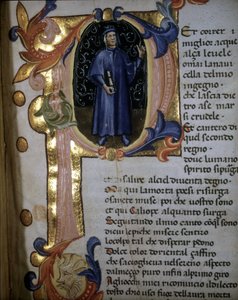 Er correr i
miglior acque
alça le uele
omai la naui
cella del mio
ingegno·
che lascia die
tro ase mar
si crudele·
Et cantero di
quel secondo
regno·
doue lumano
spirito si purga
et disalire alciel diuenta degno·
Ma qui lamorta poesi risurga
o sancte muse poi che uostro sono
et qui Caliope alquanto surga
Seguitando ilmio canto con quel suono
dicui le piche misere sentiro
lo colpo tal che disperar perdono
Dolce color doriental çaffiro
che saccoglieua nelsereno aspecto
dalmeçço puro infin alprimo giro
Agliocchi miei ricomincio dilecto
tosto chio usci fuor dellaura morta